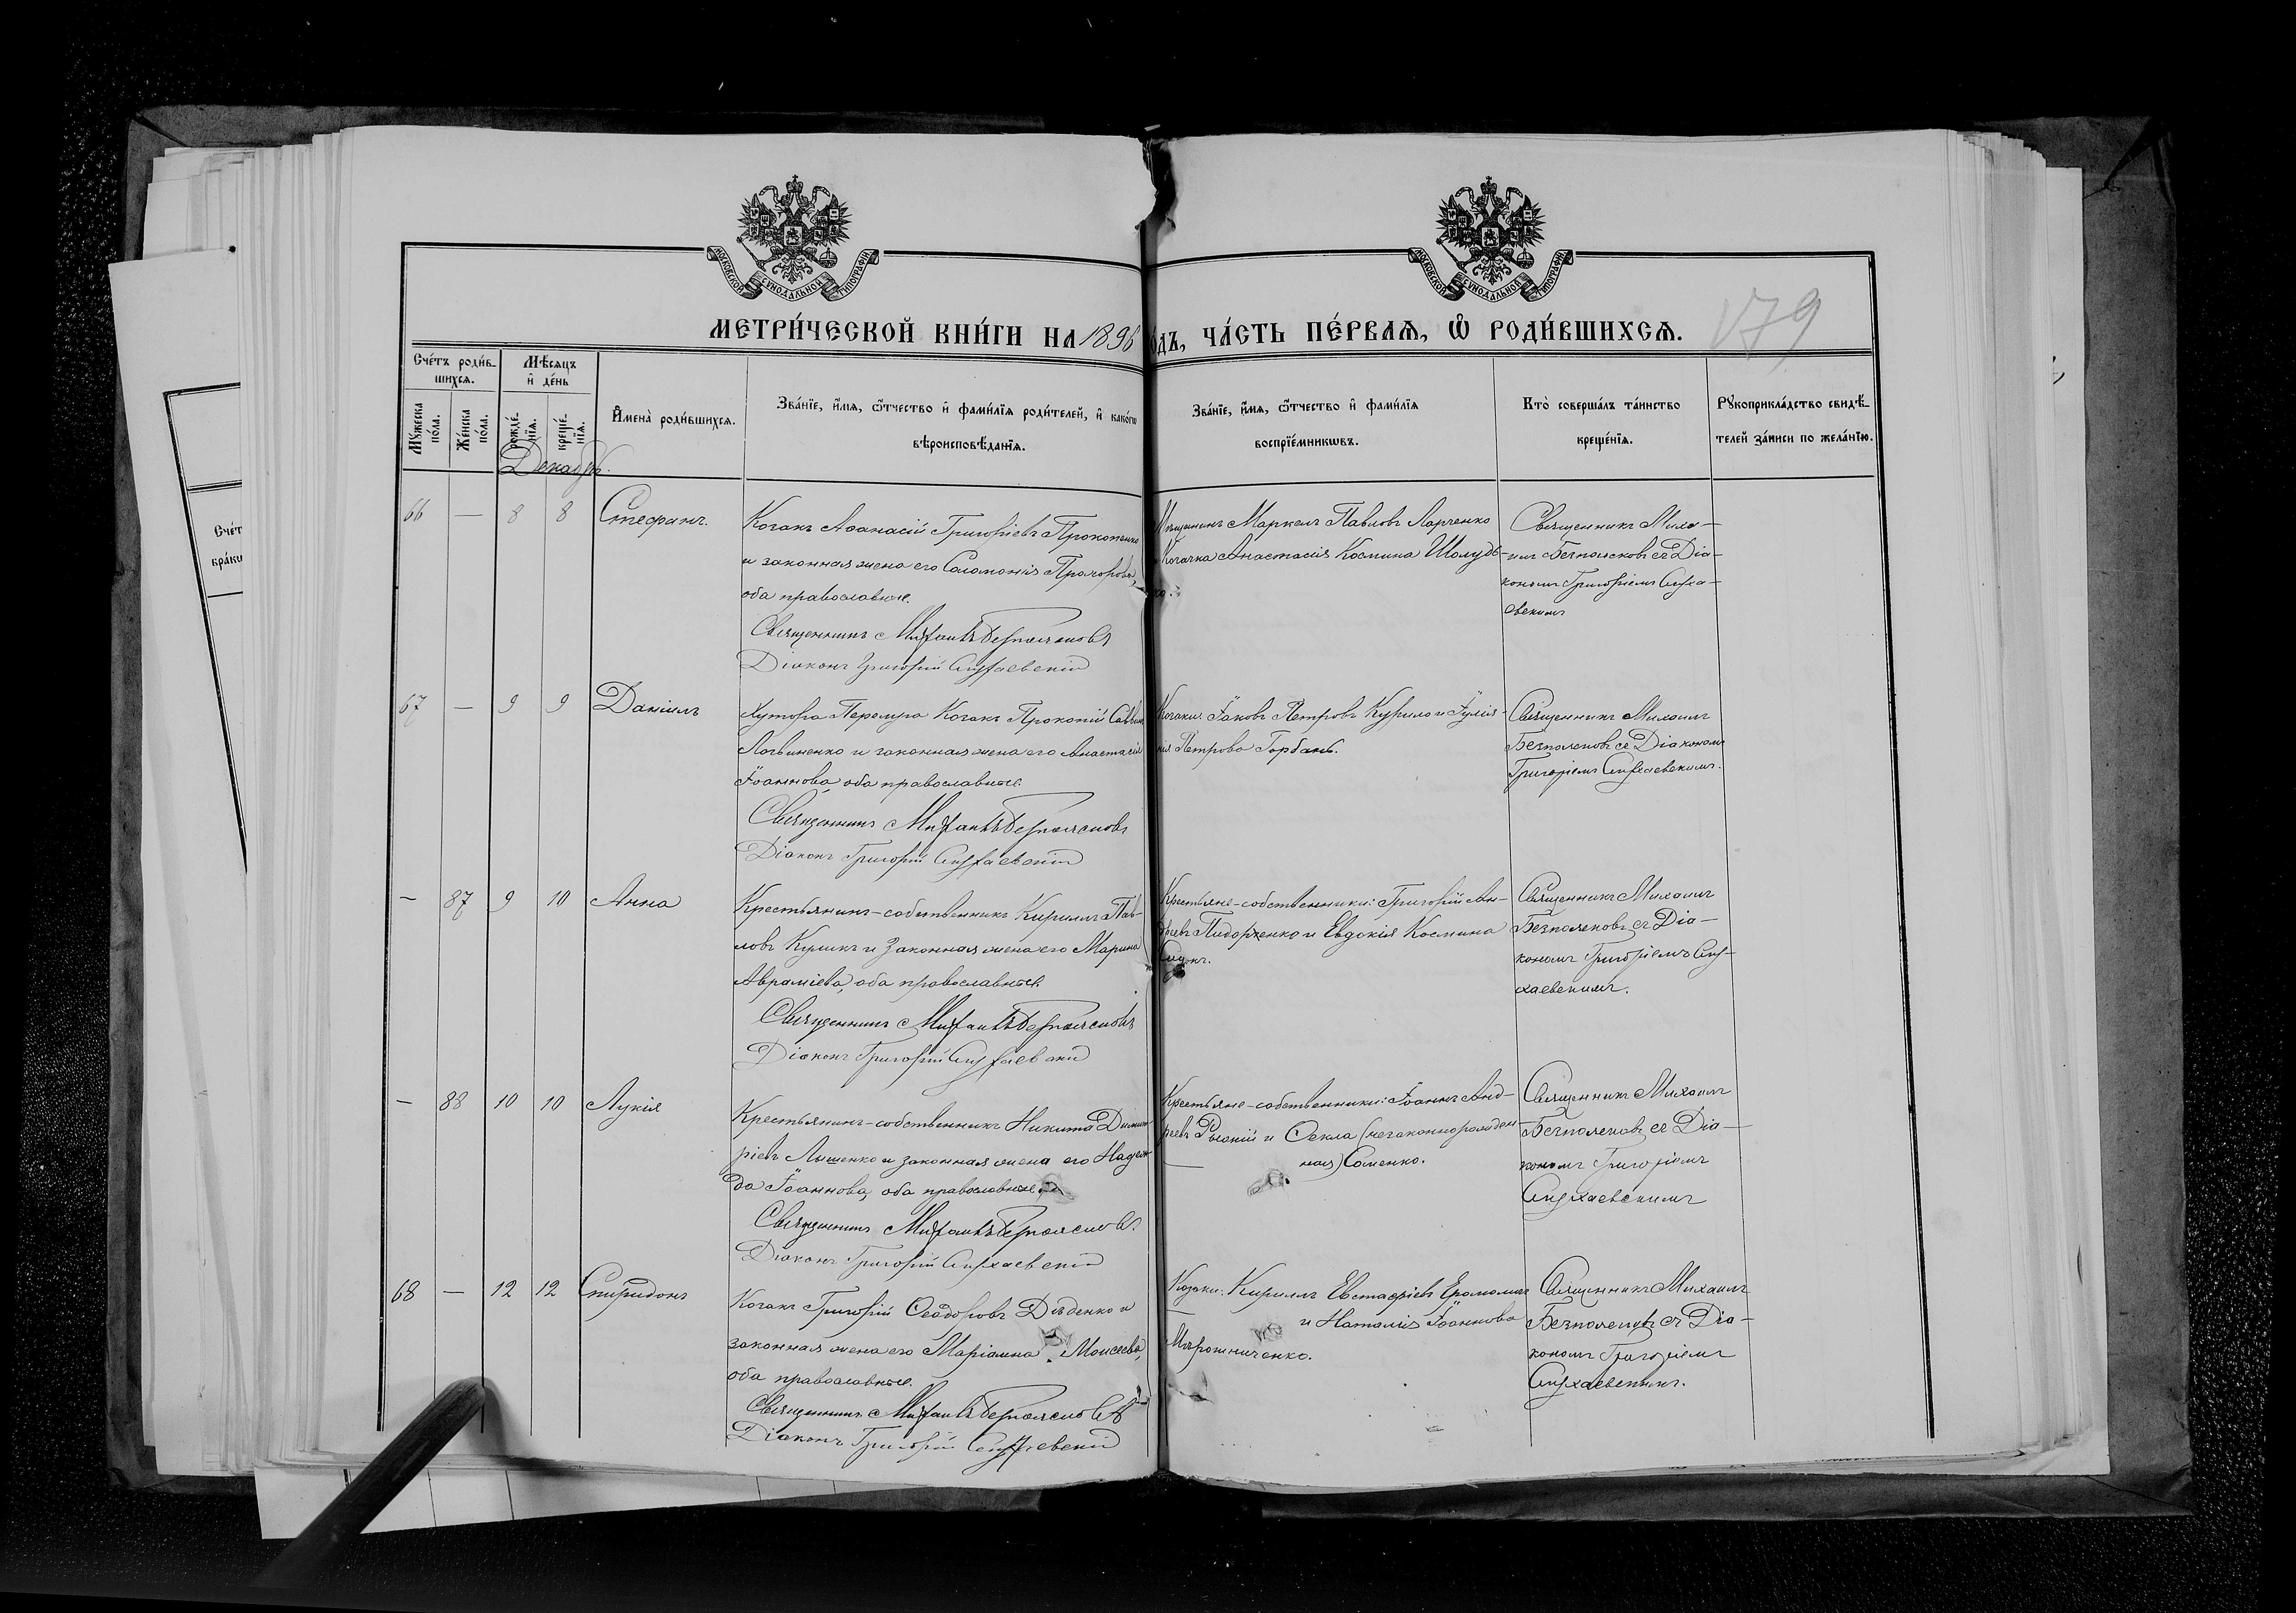 МОСКОВСКОЙ СѴНОДАЛЬНОЙ ТИПОГРАФІИ
МОСКОВСКОЙ СѴНОДАЛЬНОЙ ТИПОГРАФІИ
179
МЕТРИ́ЧЕСКОЙ КНИ́ГИ НА 1896 ГОДЪ, ЧА́СТЬ ПЕ́РВАѦ, Ѿ РОДИ́ВШИХСѦ.
Сче́тъ роди́в-
шихсѧ.
Мѣ́сѧцъ
и҆ де́нь
Мꙋ́жеска по́ла.
Же́нска по́ла.
рожде́-нїѧ.
креще́-нїѧ.
И҆мена̀ роди́вшихсѧ.
Зва́нїе, и҆́мѧ, ѻ҆́тчество и҆ фами́лїѧ роди́телей, и҆ како́гѡ
вѣроисповѣ́данїѧ.
Зва́нїе, и҆́мѧ, ѻ҆́тчество и҆ фами́лїѧ
воспрїе́мникѡвъ.
Кто̀ соверша́лъ та́инство
креще́нїѧ.
Рꙋкоприкла́дство свидѣ́-
телей за́писи по жела́нїю.
Декабрь.
66 — 8 8 Стефанъ.
Козакъ Аѳанасій Григоріевъ Прокопенко
и законная жена его Соломонія Прохорова,
оба православные.
Священникъ Михаилъ Безполсковъ
Діаконъ Григорій
Мѣщанинъ Маркелъ Павловъ Ларченко
и Козачка Анастасія Космина Шолудь-
ко.
Священникъ Миха-
илъ Безполсковъ съ Діа-
кономъ Григоріемъ
67 — 9 9 Даніилъ
Хутора Козакъ Прокопій Саввинъ
Логвиненко и законная жена его Анастасія
Іоаннова, оба православные.
Священникъ Михаилъ Безполсковъ
Діаконъ Григорій
Козаки: Іаковъ Петровъ Курило и Іулія-
нія Петрова Горбань.
Священникъ Михаилъ
Безполсковъ съ Діакономъ
Григоріемъ
— 87 9 10 Анна
Крестьянинъ-собственникъ Кириллъ Пав-
ловъ Куликъ и законная жена его Марина
Авраміева, оба православные.
Священникъ Михаилъ Безполсковъ
Діаконъ Григорій
Крестьяне-собственники: Григорій Ан-
и Евдокія Космина
Священникъ Михаилъ
Безполсковъ съ Діа-
кономъ Григоріемъ
— 88 10 10 Лукія
Крестьянинъ-собственникъ Никита Димит-
ріевъ и законная жена его Надеж-
да Іоаннова, оба православные.
Священникъ Михаилъ Безполсковъ
Діаконъ Григорій
Крестьяне-собственники: Іоаннъ Анд-
реевъ и Ѳекла (незаконнорожден-
ная) Соменко.
Священникъ Михаилъ
Безполсковъ съ Діа-
кономъ Григоріемъ
68 — 12 12 Спиридонъ
Козакъ Григорій Ѳеодоровъ Дѣденко и
законная жена его Маріамна Моисеева,
оба православные.
Священникъ Михаилъ Безполсковъ
Діаконъ Григорій
Козаки: Кириллъ Евстафіевъ
и Наталія Іоаннова
Мирошниченко.
Священникъ Михаилъ
Безполсковъ съ Діа-
кономъ Григоріемъ
Счет
браки